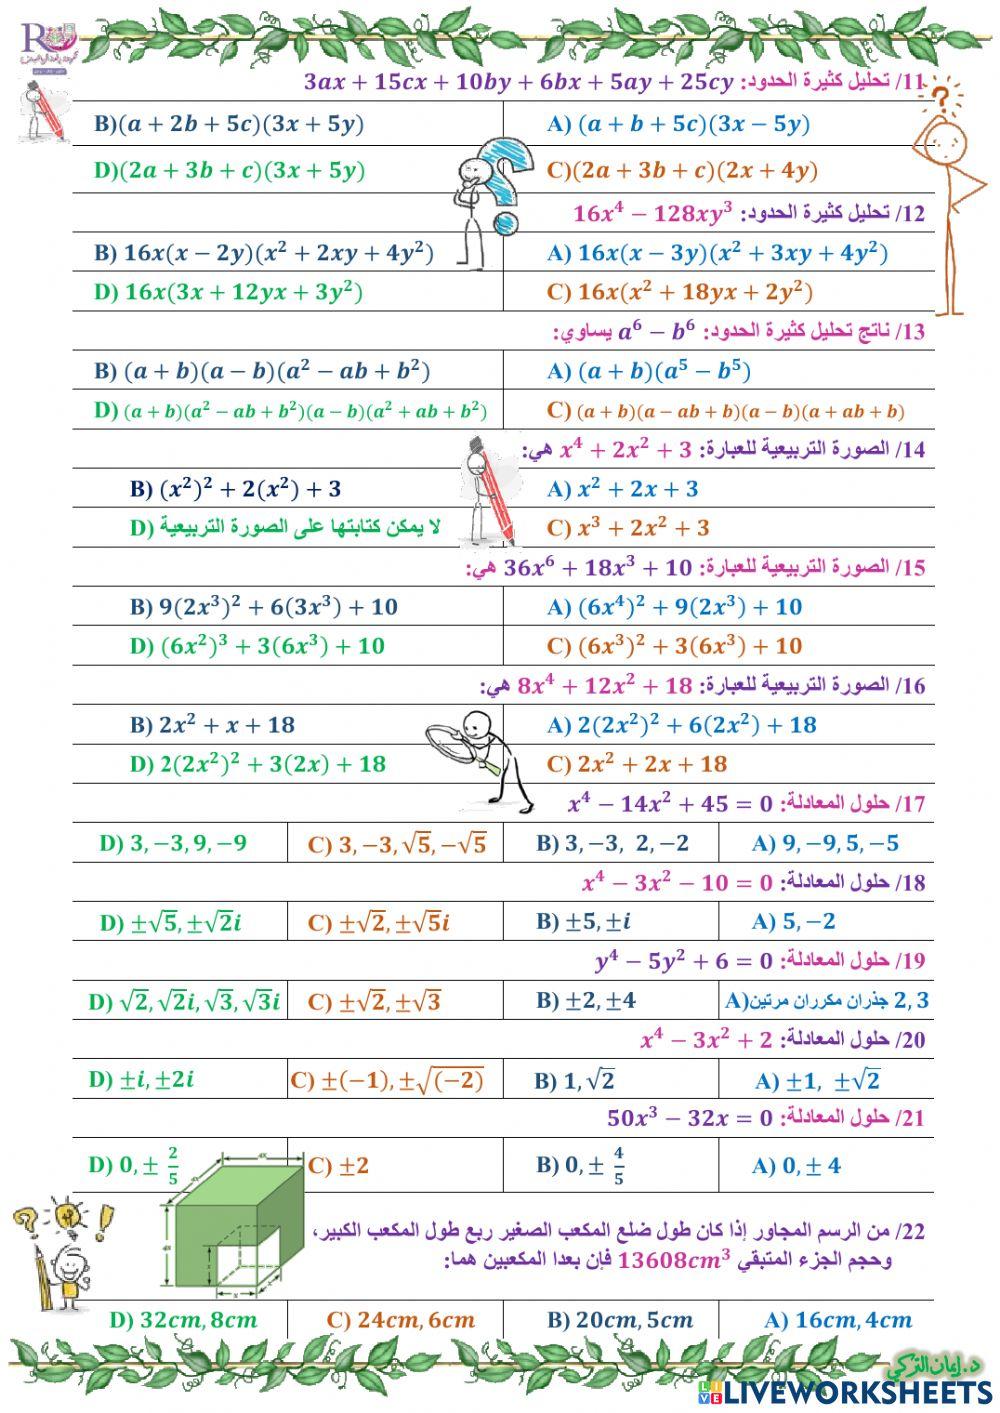 11/ تحليل كثيرة الحدود: 3ax + 15cx + 10by + 6bx + 5ay + 25cy
A) (a + b + 5c)(3x − 5y)
B)(a + 2b + 5c)(3x + 5y)
C)(2a + 3b + c)(2x + 4y)
D)(2a + 3b + c)(3x + 5y)
12/ تحليل كثيرة الحدود: 16x⁴ − 128xy³
A) 16x(x − 3y)(x² + 3xy + 4y²)
B) 16x(x − 2y)(x² + 2xy + 4y²)
C) 16x(x² + 18yx + 2y²)
D) 16x(3x + 12yx + 3y²)
13/ ناتج تحليل كثيرة الحدود: a⁶ − b⁶ يساوي:
A) (a + b)(a⁵ − b⁵)
B) (a + b)(a − b)(a² − ab + b²)
C) (a + b)(a − ab + b)(a − b)(a + ab + b)
D) (a + b)(a² − ab + b²)(a − b)(a² + ab + b²)
14/ الصورة التربيعية للعبارة: x⁴ + 2x² + 3 هي:
A) x² + 2x + 3
B) (x²)² + 2(x²) + 3
C) x³ + 2x² + 3
D) لا يمكن كتابتها على الصورة التربيعية
15/ الصورة التربيعية للعبارة: 36x⁶ + 18x³ + 10 هي:
A) (6x⁴)² + 9(2x³) + 10
B) 9(2x³)² + 6(3x³) + 10
C) (6x³)² + 3(6x³) + 10
D) (6x²)³ + 3(6x³) + 10
16/ الصورة التربيعية للعبارة: 8x⁴ + 12x² + 18 هي:
A) 2(2x²)² + 6(2x²) + 18
B) 2x² + x + 18
C) 2x² + 2x + 18
D) 2(2x²)² + 3(2x) + 18
17/ حلول المعادلة: x⁴ − 14x² + 45 = 0
A) 9, −9, 5, −5
B) 3, −3, 2, −2
C) 3, −3, √5, −√5
D) 3, −3, 9, −9
18/ حلول المعادلة: x⁴ − 3x² − 10 = 0
A) 5, −2
B) ±5, ±i
C) ±√2, ±√5i
D) ±√5, ±√2i
19/ حلول المعادلة: y⁴ − 5y² + 6 = 0
A) 2, 3 جذران مكرران مرتين
B) ±2, ±4
C) ±√2, ±√3
D) √2, √2i, √3, √3i
20/ حلول المعادلة: x⁴ − 3x² + 2
A) ±1, ±√2
B) 1, √2
C) ±(−1), ±√(−2)
D) ±i, ±2i
21/ حلول المعادلة: 50x³ − 32x = 0
A) 0, ± 4
B) 0, ± 4/5
C) ±2
D) 0, ± 2/5
22/ من الرسم المجاور إذا كان طول ضلع المكعب الصغير ربع طول المكعب الكبير،
وحجم الجزء المتبقي 13608cm³ فإن بعدا المكعبين هما:
4x
4x
x
A) 16cm, 4cm
B) 20cm, 5cm
C) 24cm, 6cm
D) 32cm, 8cm
د. إيمان التركي
LIVE LIVEWORKSHEETS